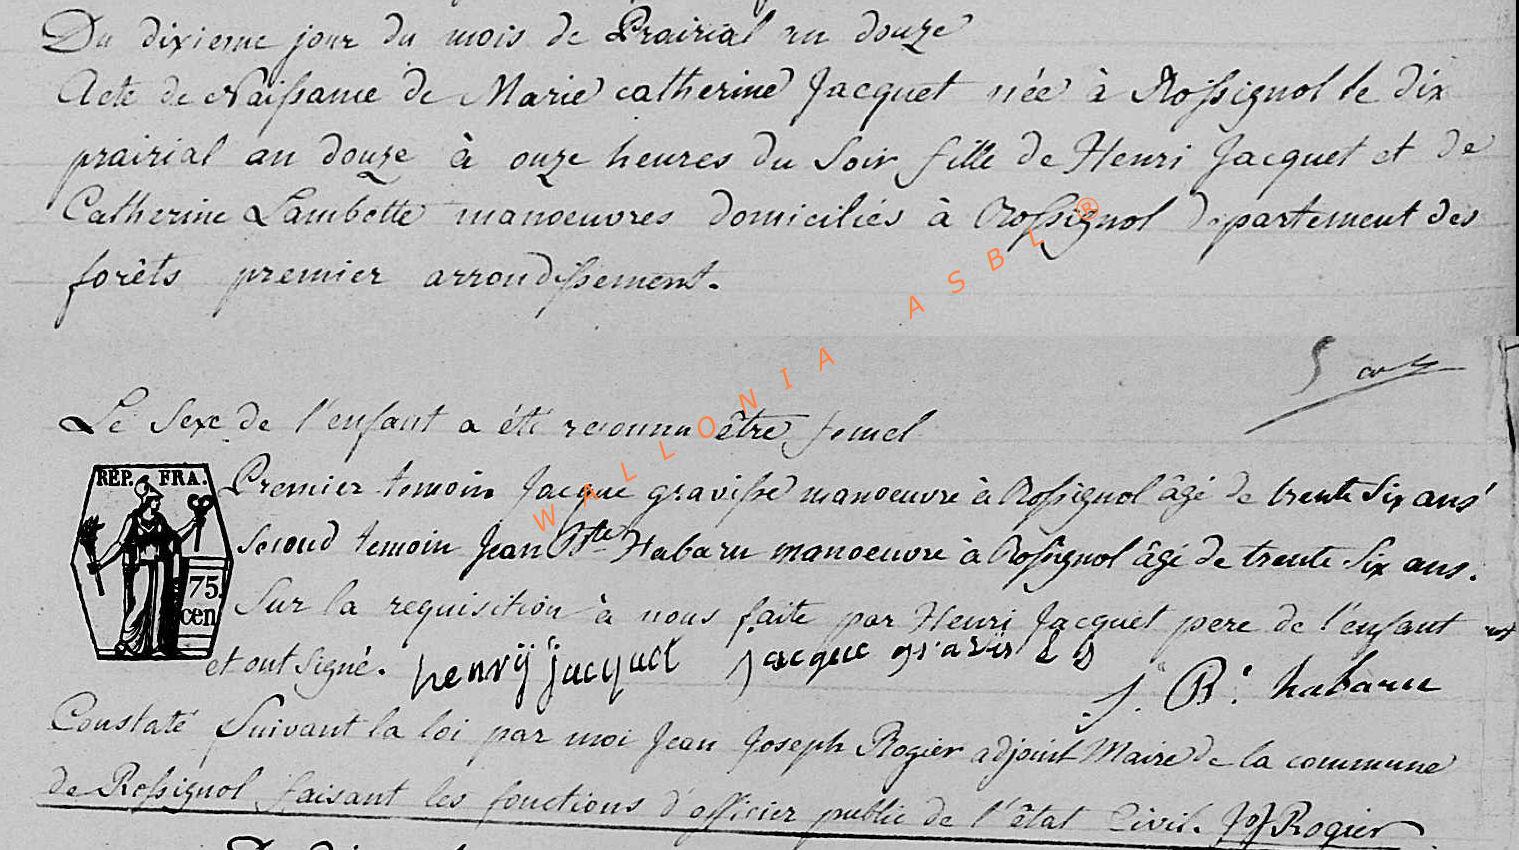 Du dixieme jour du mois de Prairial an douze
Acte de Naissance de Marie catherine Jacquet née à Rossignol le dix
prairial an douze à onze heures du Soir fille de Henri Jacquet et de
Catherine Lambotte manoeuvres domiciliés à Rossignol département des
forêts premier arrondissement.
Le Sexe de l'enfant a été reconnu être femel
REP. FRA.
75.
cen
Premier temoin Jacque gravisse manoeuvre à Rossignol âgé de trente Six ans
Second temoin Jean Bte Habaru manoeuvre à Rossignol âgé de trente Six ans.
Sur la requisition à nous faite par Henri Jacquet pere de l'enfant
et ont Signé. henrÿ jacquet jacque
j. B. habaru
Constaté Suivant la loi par moi Jean Joseph Rogier adjoint Maire de la commune
de Rossignol faisant les fonctions d'officier public de l'état Civil. Rogier
WALLONIA ASBL ®